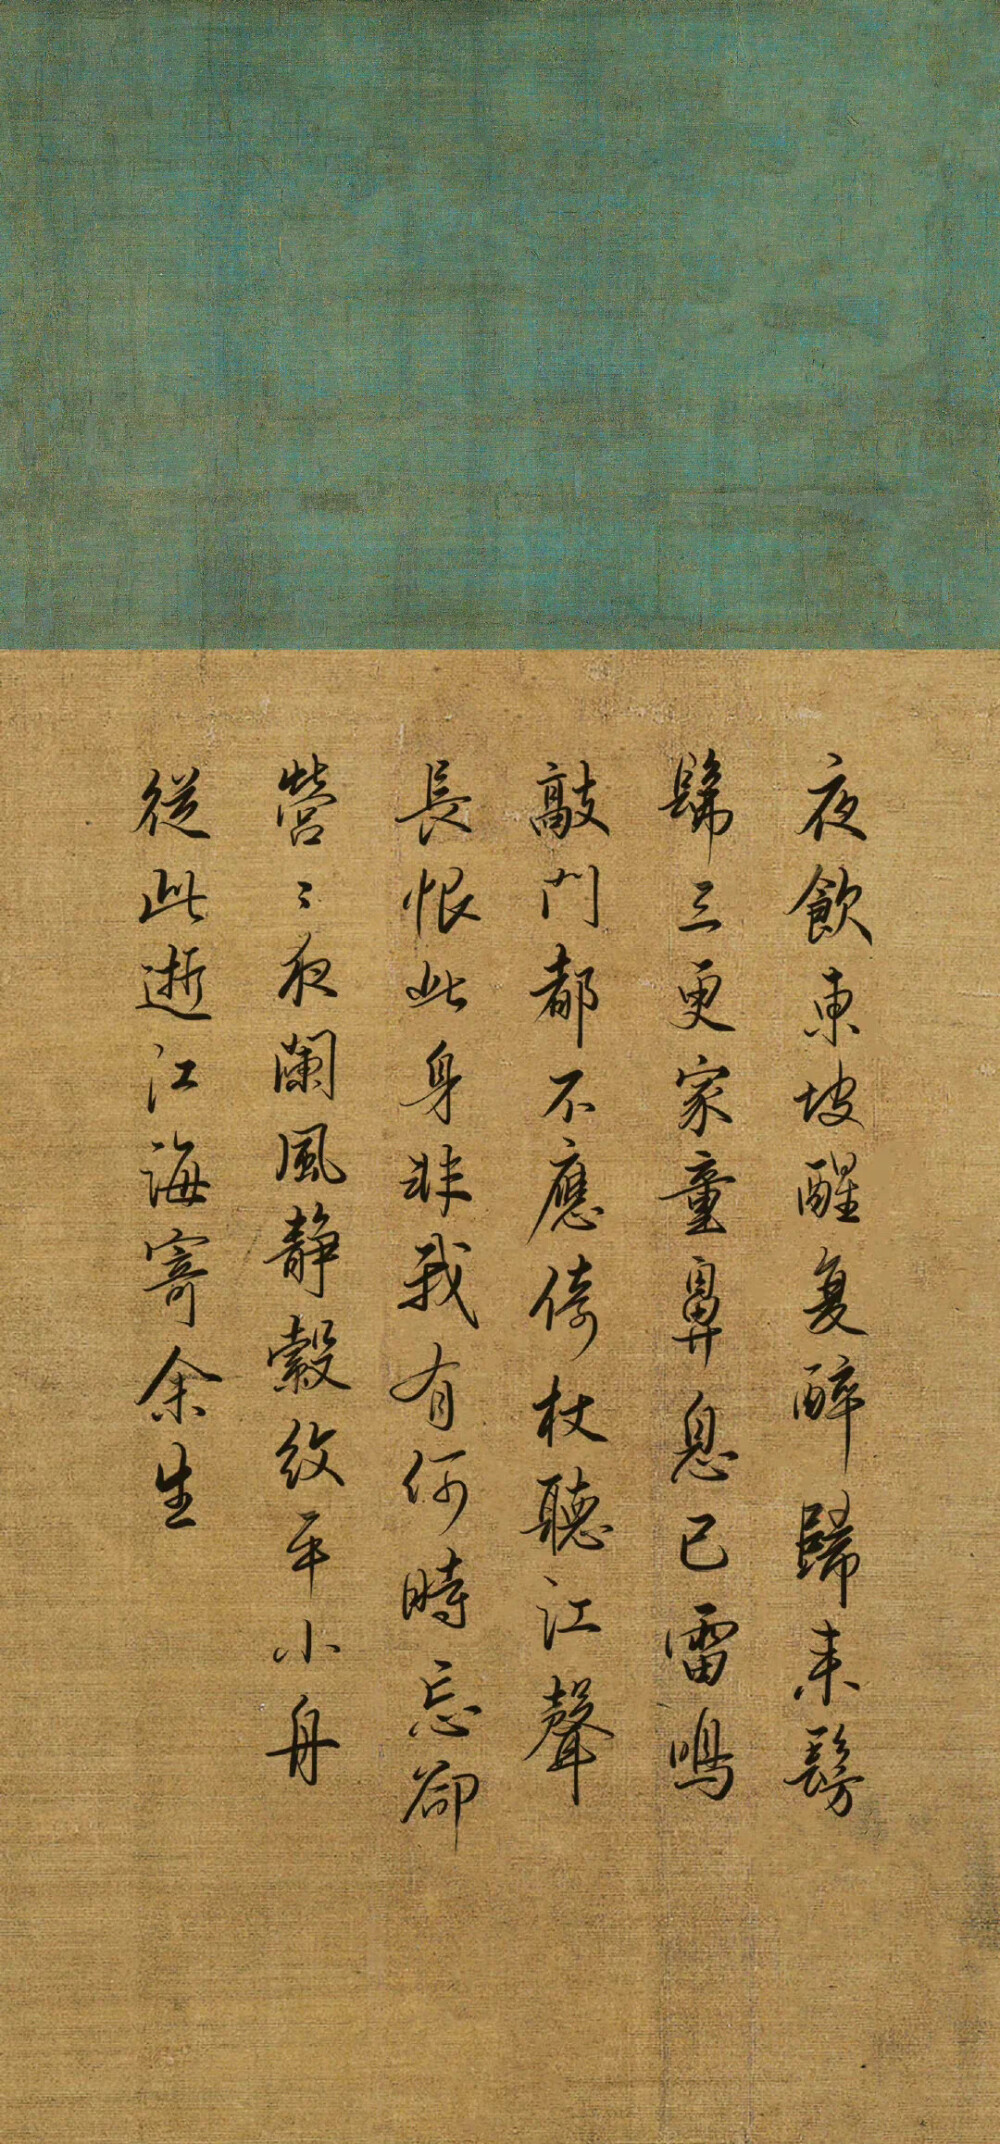 夜飲東坡醒复醉歸来髣
髴三更家童鼻息已雷鳴
敲門都不應倚杖聽江聲
長恨此身非我有何時忘卻
營〻夜闌風靜縠紋平小舟
從此逝江海寄余生